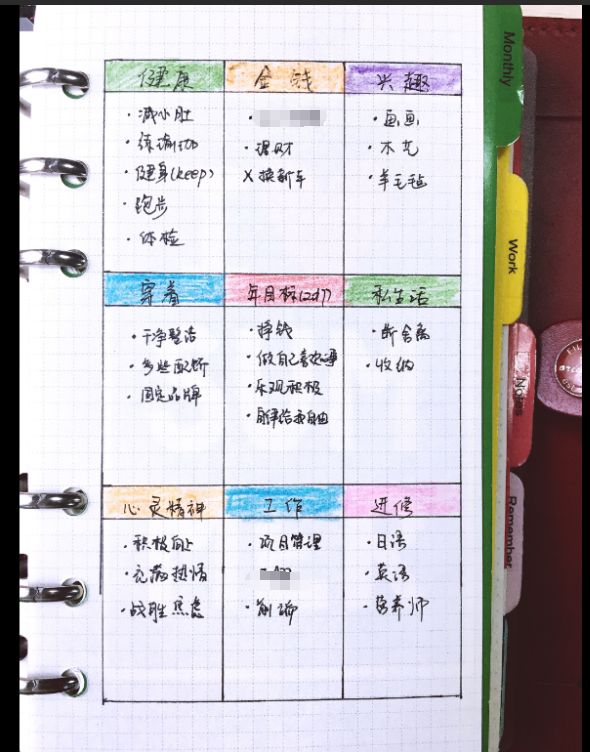 健康
金钱
兴趣
·减小肚
·练瑜珈
·健身(keep)
·跑步
·体检
·理财
×换新车
·画画
·木艺
·羊毛毡
穿着
年目标(2017)
私生活
·干净整洁
·多些配饰
·固定品牌
·挣钱
·做自己喜欢的事
·乐观积极
·自律给我自由
·断舍离
·收纳
心灵精神
工作
进修
·积极向上
·充满热情
·战胜焦虑
·项目管理
·日语
·英语
·营养师
Monthly
Work
Notes
Remember